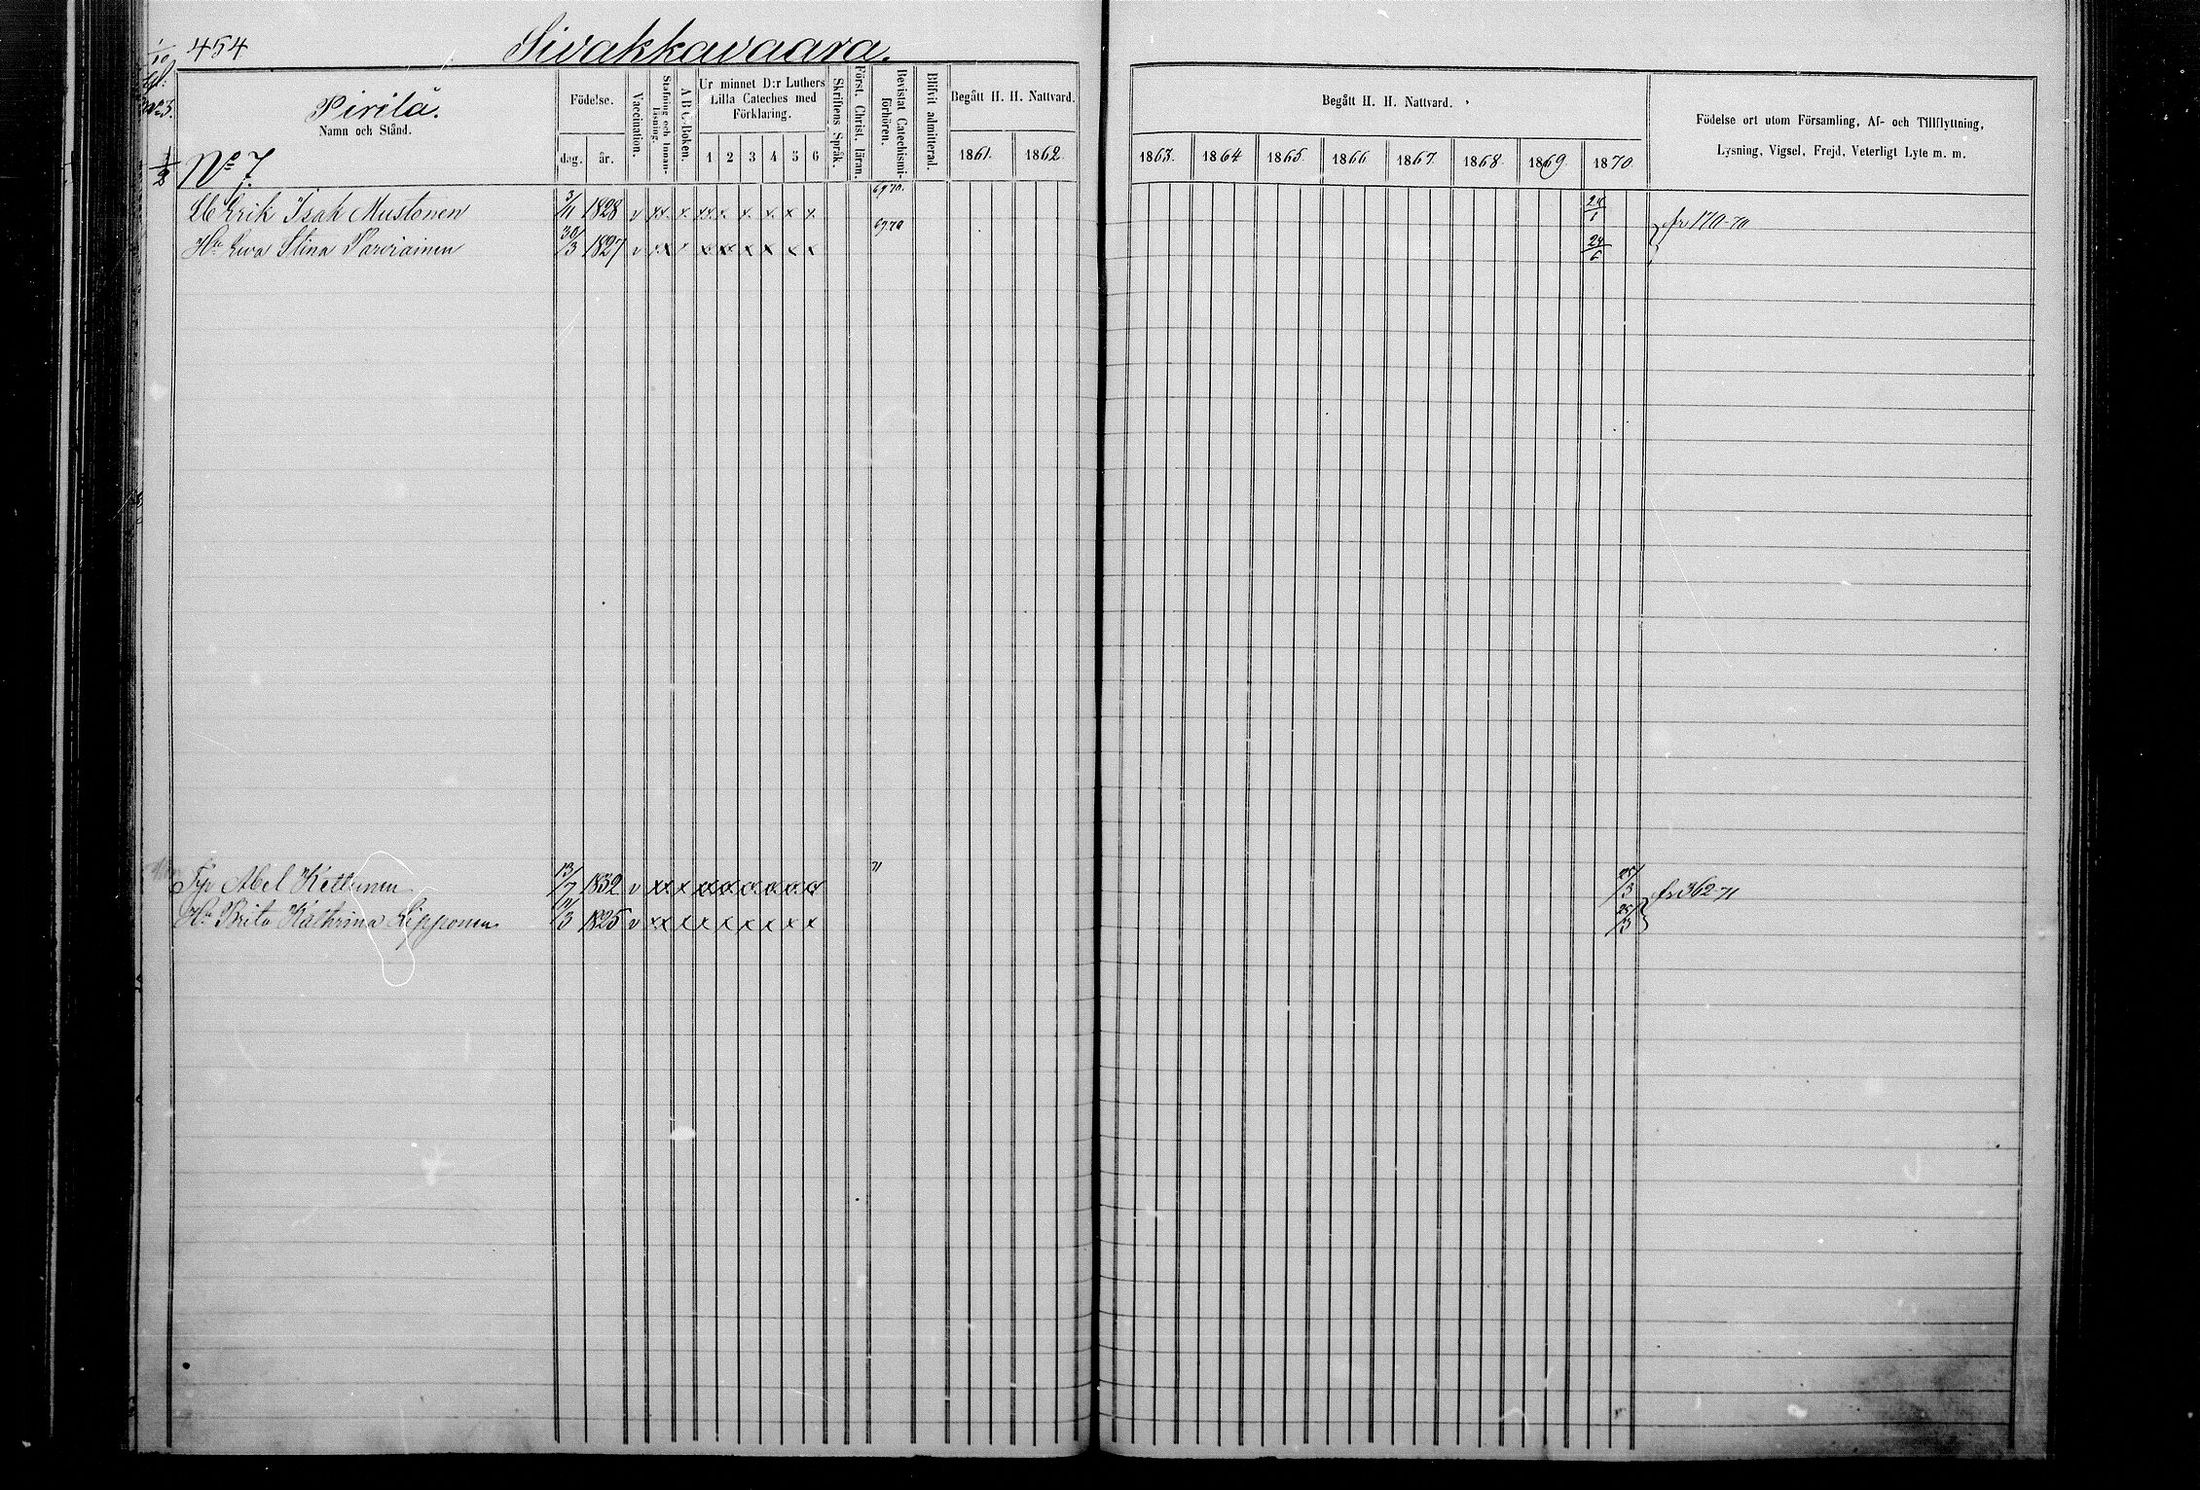 454 Sivakkavaara.
Pirilä.
Namn och Stånd.
No 7.
Födelse.
dag. år.
Vaccination.
Stafning och Innanläsning.
A B C-Boken.
Ur minnet D:r Luthers Lilla Cateches med Förklaring.
1 2 3 4 5 6
Skriftens Språk.
Först. Christ. läran.
Bevistat Catechismi-förhören.
Blifvit admitterad.
Begått H. H. Nattvard.
1861. 1862.
Begått H. H. Nattvard.
1863. 1864 1865. 1866 1867. 1868. 1869. 1870.
Födelse ort utom Församling, Af- och Tillflyttning,
Lysning, Vigsel, Frejd, Veterligt Lyte m. m.
Erik Isak Mustonen 3/11 1828 v xx x xx x x x x x 69 70. 24/1 fr 170-70
Hu Ewa Stina 30/3 1827 v xx x x x x x x x 69 70 24/6
Abel Kettunen 13/7 1832 v xx x 71 fr 362-71
Hu Brita Kathrina Lipponen /3 1825 v xx x x x x x x x 25/3